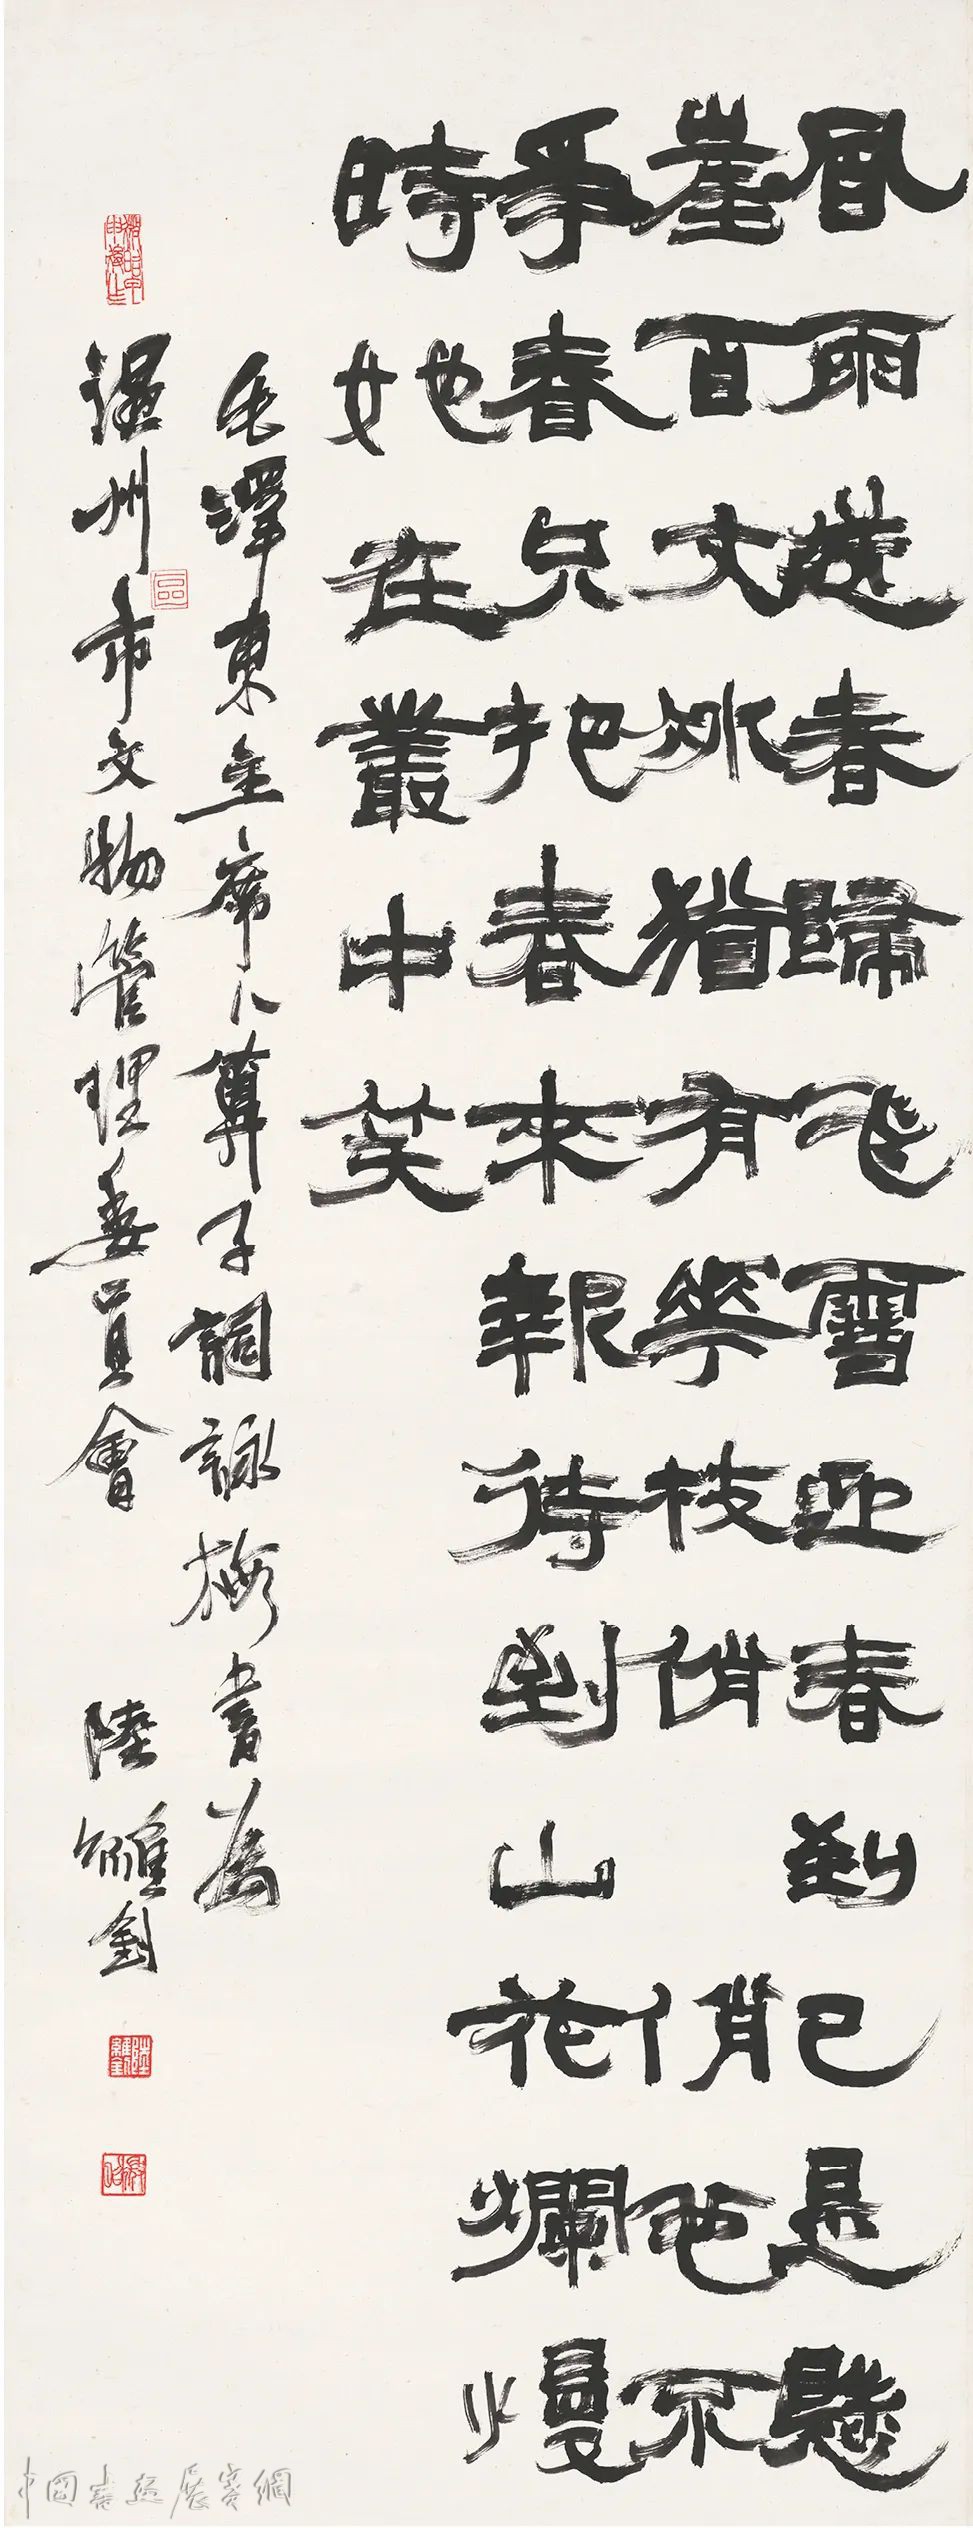 風雨送春歸飛雪迎春到已是懸
崖百丈冰猶有華枝俏俏也不
爭春只把春來報待到山花爛慢
時她在叢中笑
毛澤東主席卜算子詞詠梅書為
溫州市文物管理委員會 陸維釗
陸維釗
中國書畫展賽網